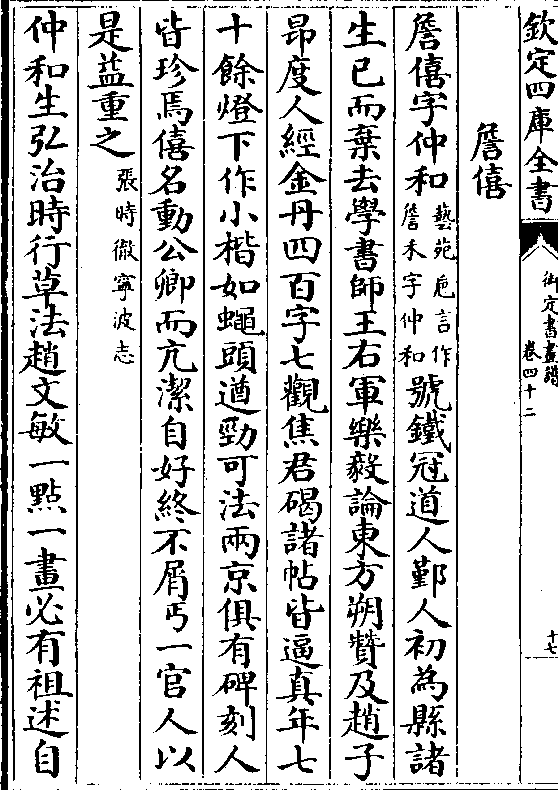 欽定四庫全書
御定書畫譜
卷四十二
十七
詹僖
詹僖字仲和藝苑巵言作詹禾字仲和號鐵冠道人鄞人初為縣諸
生已而棄去學書師王右軍樂毅論東方朔贊及趙子
昂度人經金丹四百字七觀焦君碣諸帖皆逼真年七
十餘燈下作小楷如蠅頭遒勁可法兩京俱有碑刻人
皆珍焉僖名動公卿而亢潔自好終不屑丐一官人以
是益重之張時徹寧波志
仲和生弘治時行草法趙文敏一點一畫必有祖述自